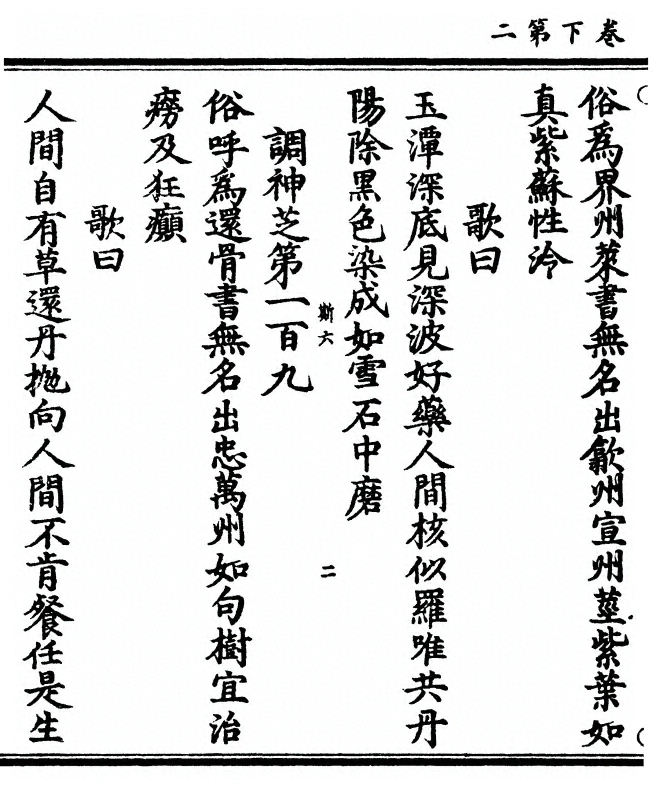 卷下第二
俗爲界州萊書無名出歙州宣州莖紫葉如
真紫蘇性冷
歌曰
玉潭深底見深波好藥人間核似羅唯共丹
陽除黑色染成如雪石中磨
斯六
二
調神芝第一百九
俗呼爲還骨書無名出忠萬州如句樹宜治
癆及狂癲
歌曰
人間自有草還丹抛向人間不肯餐任是生